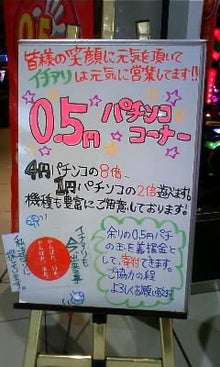 皆様の笑顔に元気を頂いて
イチアリは元気に営業してます!!
0.5円 パチンコ
コーナー
4円パチンコの8倍、
1円パチンコの2倍遊べます。
機種も豊富にご用意しております。
余りの0.5円パチ
の玉を義援金と
して、寄付できます。
ご協力の程
よろしくお願い致します
イチアリも
がんばれ、日本
がんばれ、東北